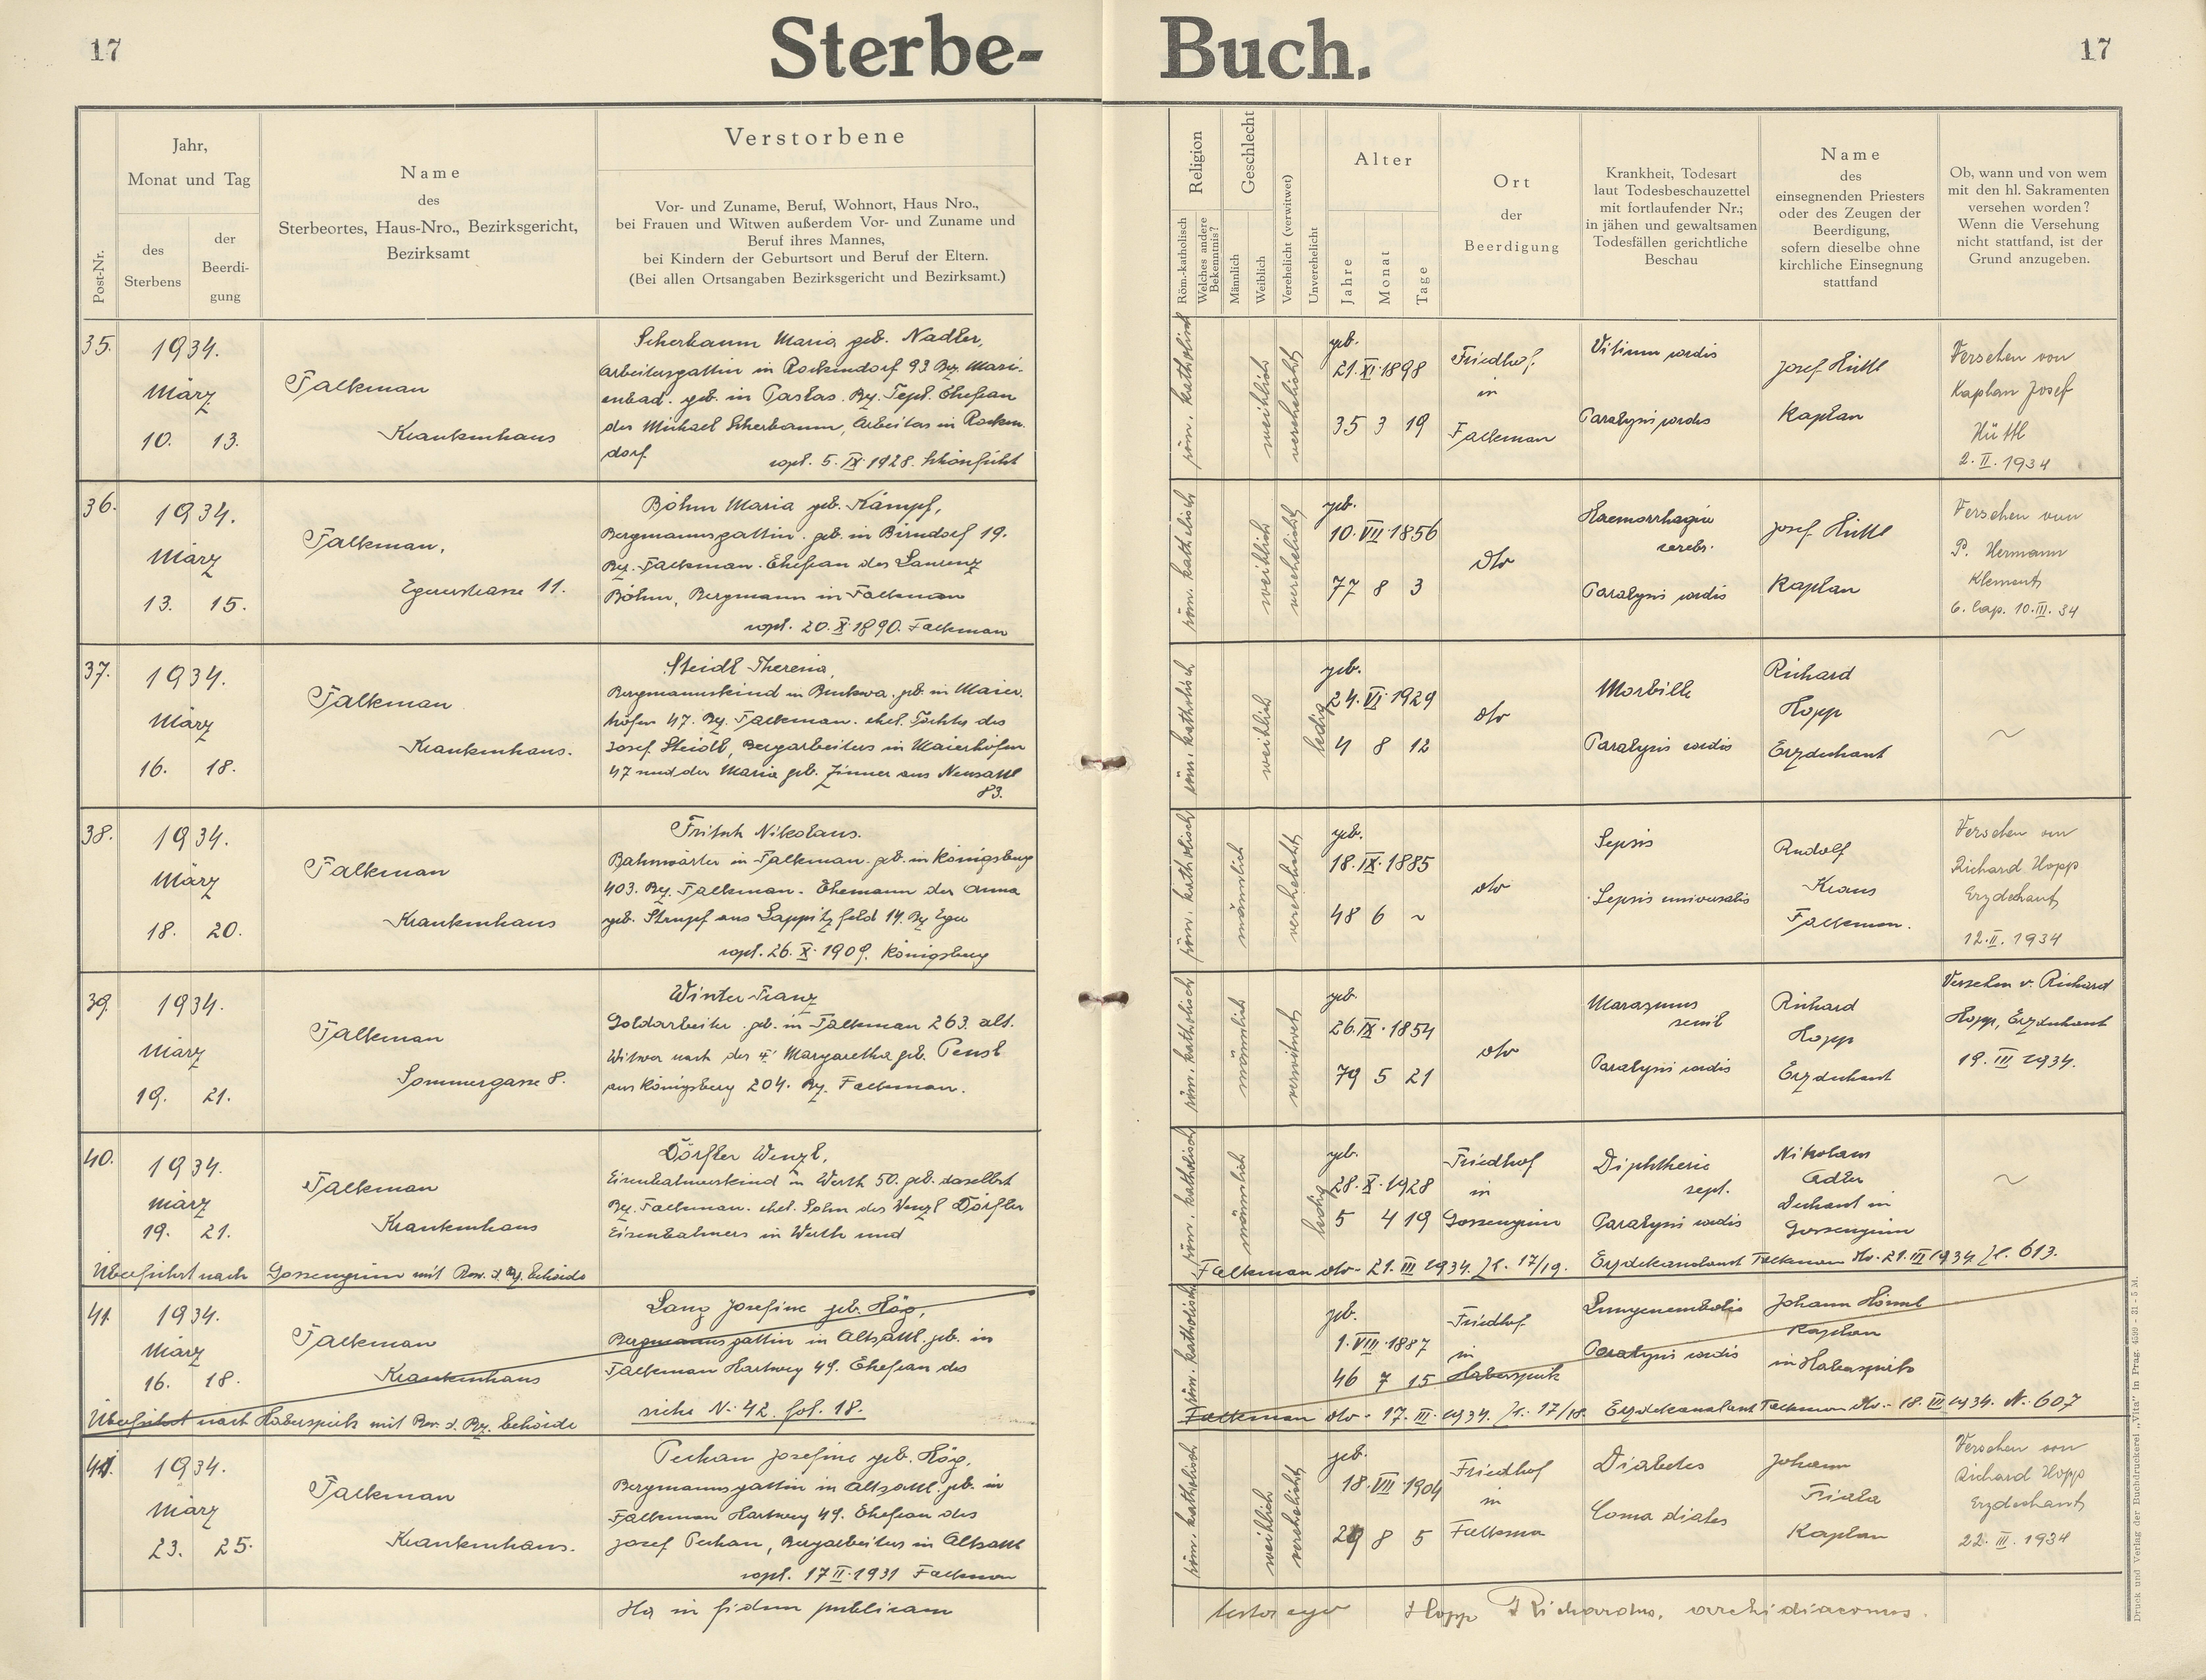 17
Sterbe-
Buch.
17
Post-Nr.
Jahr,
Monat und Tag
des
Sterbens
der
Beerdi-
gung
Name
des
Sterbeortes, Haus-Nro., Bezirksgericht,
Bezirksamt
Verstorbene
Vor- und Zuname, Beruf, Wohnort, Haus Nro.,
bei Frauen und Witwen außerdem Vor- und Zuname und
Beruf ihres Mannes,
bei Kindern der Geburtsort und Beruf der Eltern.
(Bei allen Ortsangaben Bezirksgericht und Bezirksamt.)
Religion
Röm.-katholisch
Welches andere
Bekenntnis?
Geschlecht
Männlich
Weiblich
Verehelicht (verwitwet)
Unverehelicht
Alter
Jahre
Monat
Tage
Ort
der
Beerdigung
Krankheit, Todesart
laut Todesbeschauzettel
mit fortlaufender Nr.;
in jähen und gewaltsamen
Todesfällen gerichtliche
Beschau
Name
des
einsegnenden Priesters
oder des Zeugen der
Beerdigung,
sofern dieselbe ohne
kirchliche Einsegnung
stattfand
Ob, wann und von wem
mit den hl. Sakramenten
versehen worden?
Wenn die Versehung
nicht stattfand, ist der
Grund anzugeben.
35.
1934.
März
10. 13.
Falkenau
Krankenhaus
Scherbaum Maria geb. Nadler,
Arbeitersgattin in Rockendorf 93 Bz. Mari-
enbad. geb. in Paslas. Bz. Tepl. Ehefrau
des Michael Scherbaum, Arbeiters in Rocken-
dorf.
copl. 5. IX. 1928. Schönficht
röm. katholisch
weiblich
verehelicht
geb.
21. XI. 1898
35 3 19
Friedhof
in
Falkenau
Vitium cordis
Paralysis cordis
Josef Hüttl
Kaplan
Versehen von
Kaplan Josef
Hüttl
2. II. 1934
36.
1934.
März
13. 15.
Falkenau,
Egererstrasse 11.
Böhm Maria geb. Kämpf,
Bergmannsgattin. geb. in Birndorf 19.
Bz. Falkenau. Ehefrau des Laurenz
Böhm, Bergmann in Falkenau
copl. 20. X. 1890. Falkenau
röm. katholisch
weiblich
verehelicht
geb.
10. VII. 1856
77 8 3
dto
Haemorrhagia
cerebr.
Paralysis cordis
Josef Hüttl
Kaplan
Versehen von
P. Hermann
Klement
O. Cap. 10. III. 34
37.
1934.
März
16. 18.
Falkenau
Krankenhaus.
Steidl Theresia,
Bergmannskind in Bukwa. geb. in Maier-
höfen 47. Bz. Falkenau. ehel. Tochter des
Josef Steidl, Bergarbeiters in Maierhöfen
47 und der Maria geb. Zinner aus Neusattl
83.
röm. katholisch
weiblich
ledig
geb.
24. VI. 1929
4 8 12
dto
Morbilli
Paralysis cordis
Richard
Hopp
Erzdechant
~
38.
1934.
März
18. 20.
Falkenau
Krankenhaus
Fritsch Nikolaus.
Bahnwärter in Falkenau. geb. in Königsberg
403. Bz. Falkenau. Ehemann der Anna
geb. Strupf aus Lappitzfeld 14. Bz Eger
copl. 26. X. 1909. Königsberg
röm. katholisch
männlich
verehelicht
geb.
18. IX. 1885
48 6 ~
dto
Sepsis
Sepsis universalis
Rudolf
Kraus
Falkenau.
Versehen von
Richard Hopp
Erzdechant
12. II. 1934
39.
1934.
März
19. 21.
Falkenau
Sommergasse 8.
Winter Franz
Goldarbeiter. geb. in Falkenau 263. alt.
Witwer nach der † Margaretha geb. Pensl
aus Königsberg 204. Bz. Falkenau.
röm. katholisch
männlich
verwitwet
geb.
26. IX. 1854
79 5 21
dto
Marasmus
senil
Paralysis cordis
Richard
Hopp
Erzdechant
Versehen v. Richard
Hopp, Erzdechant
19. III 1934.
40.
1934.
März
19. 21.
Falkenau
Krankenhaus
Dörfler Wenzl,
Eisenbahnerskind in Werth 50. geb. daselbst
Bz. Falkenau. ehel. Sohn des Wenzl Dörfler
Eisenbahners in Werth und
röm. katholisch
männlich
ledig
geb.
28. X. 1928
5 4 19
Friedhof
in
Gossengrün
Diphtherie
sept.
Paralysis cordis
Nikolaus
Adler
Dechant in
Gossengrün
~
Überführt nach Gossengrün mit Bew. d. Bz. Behörde
Falkenau dto. 21. III 1934. Zl. 17/19. Erzdekanalamt Falkenau dto. 21. III 1934 Zl. 613.
41.
1934.
März
16. 18.
Falkenau
Krankenhaus
Lang Josefine geb. Hög,
Bergmannsgattin in Altsattl. geb. in
Falkenau Hartweg 49. Ehefrau des
siehe N: 42. fol. 18.
röm. katholisch
geb.
1. VIII. 1887
46 7 15
Friedhof
in
Haberspirk
Lungenembolie
Paralysis cordis
Johann Hörnl
Kaplan
in Haberspirk
Überführt nach Haberspirk mit Bew. d. Bz. Behörde
Falkenau dto. 17. III. 1934. Zl. 17/18. Erzdekanalamt Falkenau dto. 18. III 1934. N. 607
41.
1934.
März
23. 25.
Falkenau
Krankenhaus.
Pechan Josefine geb. Hög,
Bergmannsgattin in Altsattl. geb. in
Falkenau Hartweg 49. Ehefrau des
Josef Pechan, Bergarbeiters in Altsattl
copl. 17 II. 1931 Falkenau
röm. katholisch
weiblich
verehelicht
geb.
18. VII. 1904
29 8 5
Friedhof
in
Falkenau
Diabetes
Coma diabet
Johann
Fiala
Kaplan
Versehen von
Richard Hopp
Erzdechant
22. III. 1934
Ita in fidem publicam
testor ego Hopp Richardus, archidiaconus.
Druck und Verlag der Buchdruckerei „Vita" in Prag. 4599 - 31 - 5 M.